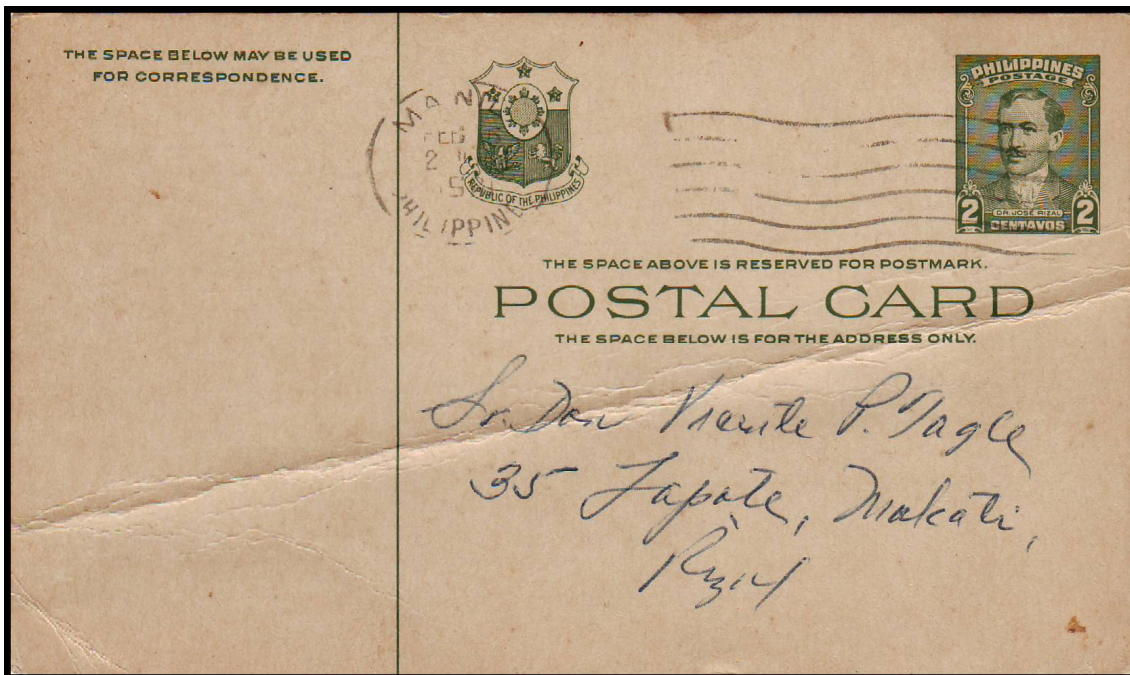 THE SPACE BELOW MAY BE USED
FOR CORRESPONDENCE.
MANI
FEB
2
5
PHILIPPINE
REPUBLIC OF THE PHILIPPINES
PHILIPPINES
POSTAGE
DR. JOSÉ RIZAL
2 CENTAVOS 2
THE SPACE ABOVE IS RESERVED FOR POSTMARK.
POSTAL CARD
THE SPACE BELOW IS FOR THE ADDRESS ONLY.
Sr. Don Vicente P. Tagle
35 Zapote, Makati,
Rizal